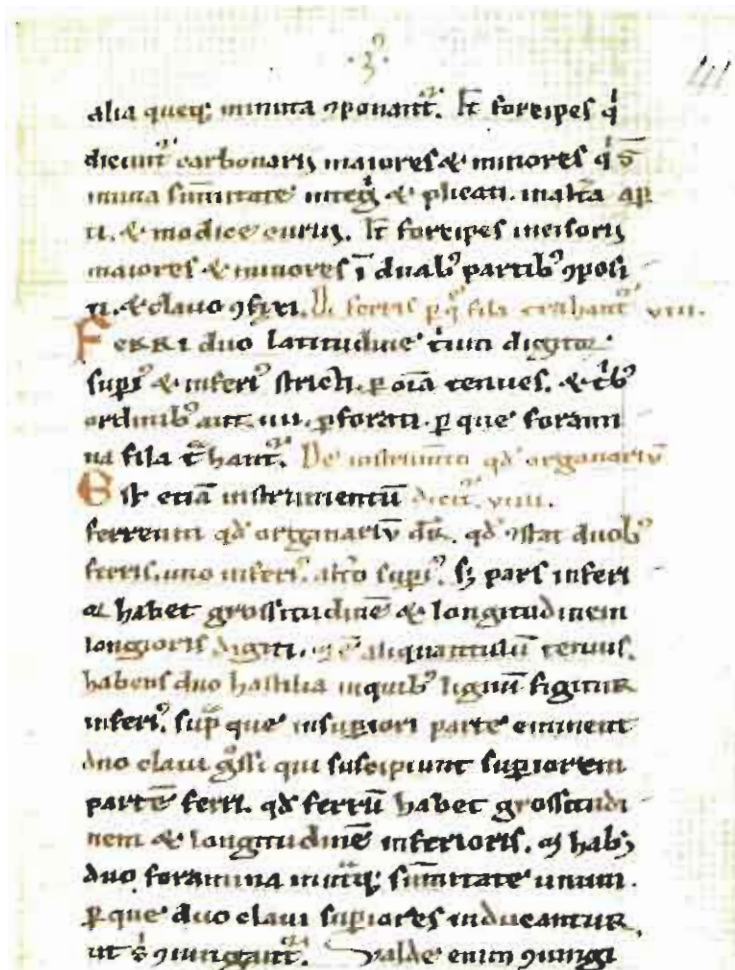 ·3·
41
alia queq; minuta ꝯponant᷑. It̄ forcipes q̍
dicunt᷑ carbonarij maiores & minores q̍ s̄
inuna sūmitate integ̍ & plicati. inalt̄a aꝑ
ti. & modice curuj. It̄ forcipes incisorij
maiores & minores ī duab᷒ partib᷒ ꝯposi
ti. & clauo ꝯfixi. D ferris ꝑ q᷒ fila trahant᷑ viii.
FERRI duo latitudine t̍um digitoꝝ
supi᷒ & inferi᷒ stricti. ꝑ oīa tenues. & t̍b᷒
ordinib᷒ aut. iiii. ꝑforati. ꝑ que forami
na fila t̄hant᷑. De instrum̄to qd̄ organariū
Est etiā instrumentū dicit᷑. viiii.
ferreum qd̄ organariū dr̄. qd̄ ꝯstat duob᷒
ferris. uno inferi᷒. alt̄o supi᷒. Sꝫ pars inferi
or habet grossitudinē & longitudinem
longioris digiti. & ē aliquantulū tenuis.
habens duo hastilia inquib᷒ lignū figitur
inferi᷒. sup̄ que insuꝑiori parte eminent
duo claui g᷒ssi qui suscipiunt suꝑiorem
partē ferri. qd̄ ferrū habet grossitudi
nem & longitudinē inferioris. & habꝫ
duo foramina inutq; sūmitate unum.
ꝑ que duo claui suꝑiores inducantur
ut s̍ ꝯiungant᷑. Valde enim ꝯiungi